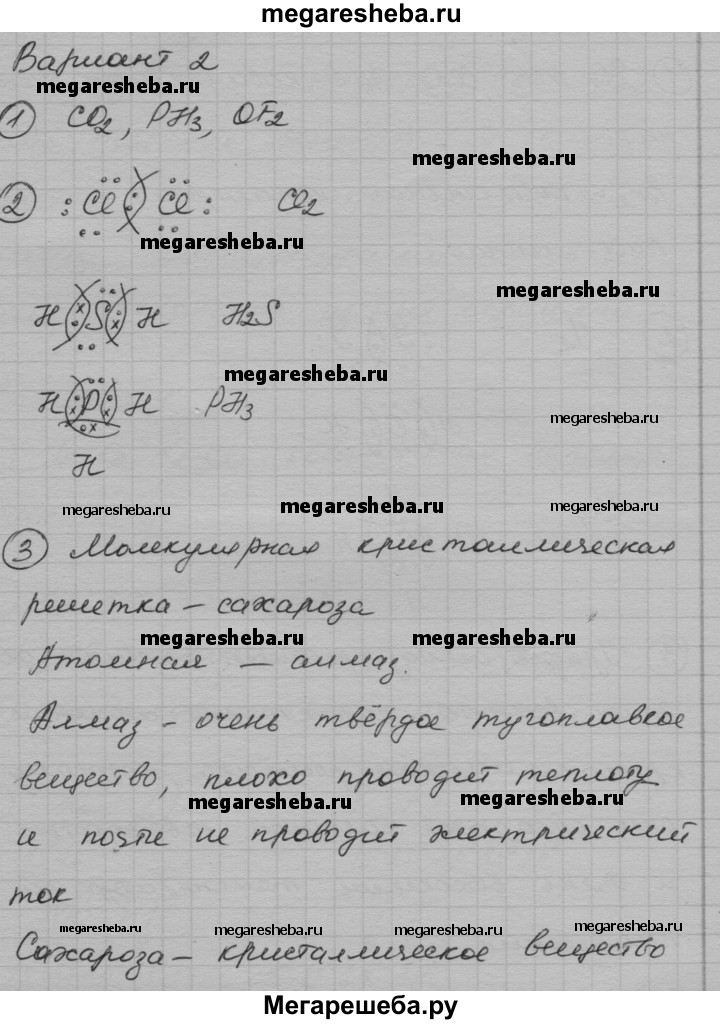 megaresheba.ru
Вариант 2
megaresheba.ru
① CO₂, PH₃, OF₂
megaresheba.ru
② :Cl : Cl: Cl₂
megaresheba.ru
megaresheba.ru
H S H H₂S
megaresheba.ru
H P H PH₃
megaresheba.ru
H
megaresheba.ru megaresheba.ru megaresheba.ru
③ Молекулярная кристаллическая
решетка – сахароза
megaresheba.ru megaresheba.ru
Атомная – алмаз.
Алмаз – очень твёрдое тугоплавкое
вещество, плохо проводит теплоту
megaresheba.ru megaresheba.ru
и почти не проводит электрический
ток
megaresheba.ru megaresheba.ru megaresheba.ru megaresheba.ru
Сахароза – кристаллическое вещество
Мегарешеба.ру